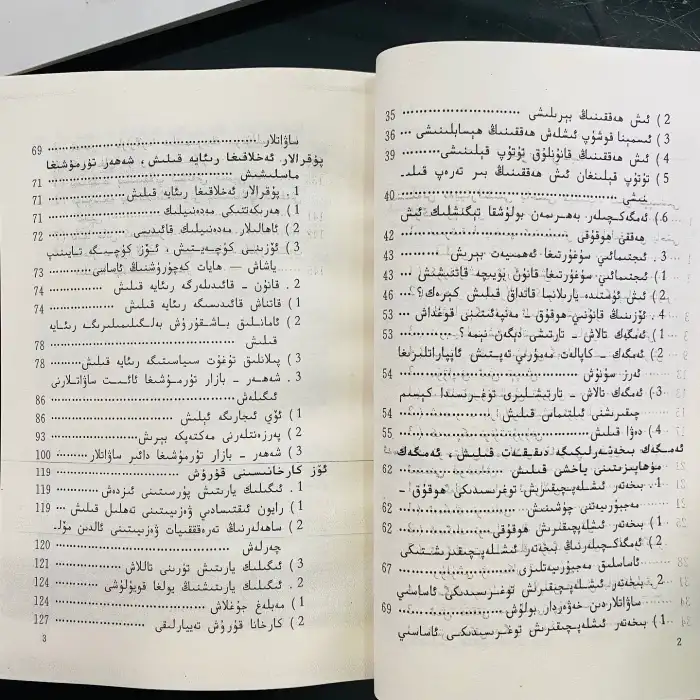 2) ئىش ھەققىنىڭ بېرىلىشى ........................ 35
3) ئىسمېنا قوشۇپ ئىشلەش ھەققىنىڭ ھېسابلىنىشى ... 36
4) ئىش ھەققىنىڭ قانۇنلۇق تۇتۇپ قېلىنىشى ............ 39
5) تۇتۇپ قېلىنغان ئىش ھەققىنىڭ بىر تەرەپ قىلى-
نىشى ........................ 40
6) ئەمگەكچىلەر بەھرىمەن بولۇشقا تېگىشلىك ئىش
ھەققى ھوقۇقى ........................ 42
3. ئىجتىمائىي سۇغۇرتىغا ئەھمىيەت بېرىش ............ 43
1) ئىجتىمائىي سۇغۇرتىغا قانۇن بويىچە قاتنىشىش ... 43
2) ئىش ئۈستىدە يارىلانسا قانداق قىلىش كېرەك؟ ... 46
4. ئۆزىنىڭ قانۇنىي ھوقۇق - مەنپەئىتىنى قوغداش ... 53
1) ئەمگەك تالاش - تارتىشى دېگەن نېمە؟ ............ 53
2) ئەمگەك - كاپالەت مەمۇرىي تەپتىش ئاپپاراتلىرىغا
ئەرز سۇنۇش ........................ 54
3) ئەمگەك تالاش - تارتىشلىرى توغرىسىدا كېسىم
چىقىرىشنى ئىلتىماس قىلىش ............ 54
4) دەۋا قىلىش ........................ 55
ئەمگەك بىخەتەرلىكىگە دىققەت قىلىش، ئەمگەك
مۇھاپىزىتىنى ياخشى قىلىش ............ 62
1. بىخەتەر ئىشلەپچىقىرىش توغرىسىدىكى ھوقۇق -
مەجبۇرىيەتنى چۈشىنىش ............ 62
1) بىخەتەر ئىشلەپچىقىرىش ھوقۇقى ............ 62
2) ئەمگەكچىلەرنىڭ بىخەتەر ئىشلەپچىقىرىشتىكى
ئاساسلىق مەجبۇرىيەتلىرى ............ 67
2. بىخەتەر ئىشلەپچىقىرىش توغرىسىدىكى ئاساسىي
ساۋاتلاردىن خەۋەردار بولۇش ............ 69
1) بىخەتەر ئىشلەپچىقىرىش توغرىسىدىكى ئاساسىي
2
ساۋاتلار ........................ 69
پۇقرالار ئەخلاقىغا رىئايە قىلىش، شەھەر تۇرمۇشىغا
ماسلىشىش ........................ 71
1. پۇقرالار ئەخلاقىغا رىئايە قىلىش ............ 71
1) ھەرىكەتتىكى مەدەنىيلىك ............ 71
2) ئاھالىلار مەدەنىيلىك قائىدىسى ............ 72
3) ئۆزىنى كۈچەيتىش، ئۆز كۈچىگە تايىنىپ
ياشاش — ھايات كەچۈرۈشنىڭ ئاساسى ............ 73
2. قانۇن - قائىدىلەرگە رىئايە قىلىش ............ 74
1) قاتناش قائىدىسىگە رىئايە قىلىش ............ 74
2) ئامانلىق باشقۇرۇش بەلگىلىمىلىرىگە رىئايە
قىلىش ........................ 78
3) پىلانلىق تۇغۇت سىياسىتىگە رىئايە قىلىش ......... 78
3. شەھەر - بازار تۇرمۇشىغا ئائىت ساۋاتلارنى
ئىگىلەش ........................ 86
1) ئۆي ئىجارىگە ئېلىش ............ 86
2) پەرزەنتلەرنى مەكتەپكە بېرىش ............ 93
3) شەھەر - بازار تۇرمۇشىغا دائىر ساۋاتلار ......... 100
ئۆز كارخانىسىنى قۇرۇش ............ 119
1. ئىگىلىك يارىتىش پۇرسىتىنى ئىزدەش ............ 119
1) رايون ئىقتىسادىي ۋەزىيىتىنى تەھلىل قىلىش ... 119
2) ساھەلەرنىڭ تەرەققىيات ۋەزىيىتىنى ئالدىن مۆل-
چەرلەش ........................ 120
3) ئىگىلىك يارىتىش تۈرىنى تاللاش ............ 121
2. ئىگىلىك يارىتىشنىڭ يولغا قويۇلۇشى ............ 124
1) مەبلەغ جۇغلاش ........................ 124
2) كارخانا قۇرۇش تەييارلىقى ............ 127
3